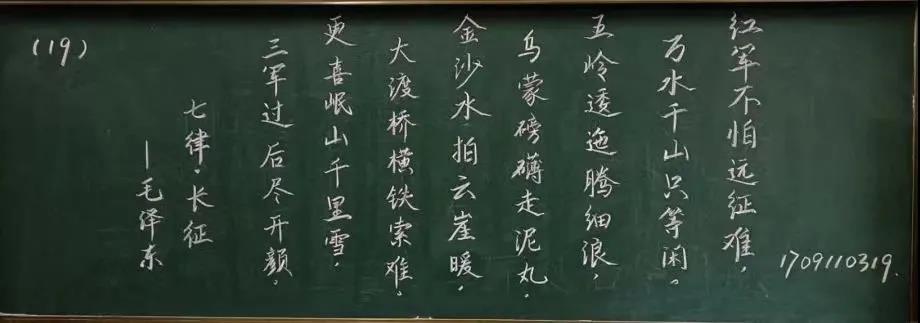 (19)
红军不怕远征难,
万水千山只等闲。
五岭透迤腾细浪,
乌蒙磅礴走泥丸。
金沙水拍云崖暖,
大渡桥横铁索难。
更喜岷山千里雪,
三军过后尽开颜。
七律·长征
—毛泽东
1709110319.